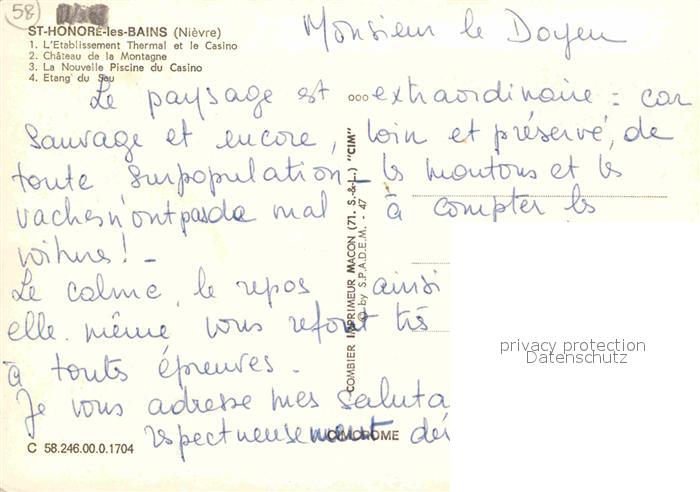 58
ST-HONORÉ-les-BAINS (Nièvre)
1. L'Etablissement Thermal et le Casino
2. Château de la Montagne
3. La Nouvelle Piscine du Casino
4. Etang du Seu
Monsieur le Doyen
Le paysage est extraordinaire : car
sauvage et encore, loin et préservé, de
toute surpopulation - les moutons et les
vaches n'ont pas de mal à compter les
voitures ! -
Le calme, le repos ainsi
elle même vous refont très
à toutes épreuves.
Je vous adresse mes saluta
respectueusement dé
COMBIER IMPRIMEUR MACON (71. S.-&-L.) "CIM"
© by S.P.A.D.E.M. - 47
CIMCHROME
C 58.246.00.0.1704
privacy protection
Datenschutz